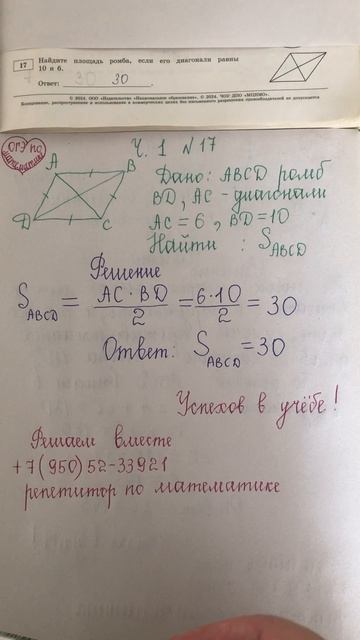 17 Найдите площадь ромба, если его диагонали равны
10 и 6.
Ответ: 30
© 2024. ООО «Издательство «Национальное образование». © 2024. ЧОУ ДПО «МЦНМО».
Копирование, распространение и использование в коммерческих целях без письменного разрешения правообладателя не допускается
ОГЭ по математике
Ч. 1 N17
A B
D C
Дано: ABCD ромб
BD, AC - диагонали
AC = 6, BD = 10
Найти: S ABCD
Решение
S ABCD = AC · BD / 2 = 6·10 / 2 = 30
Ответ: S ABCD = 30
Успехов в учёбе!
Решаем вместе
+7(950)52-33921
репетитор по математике